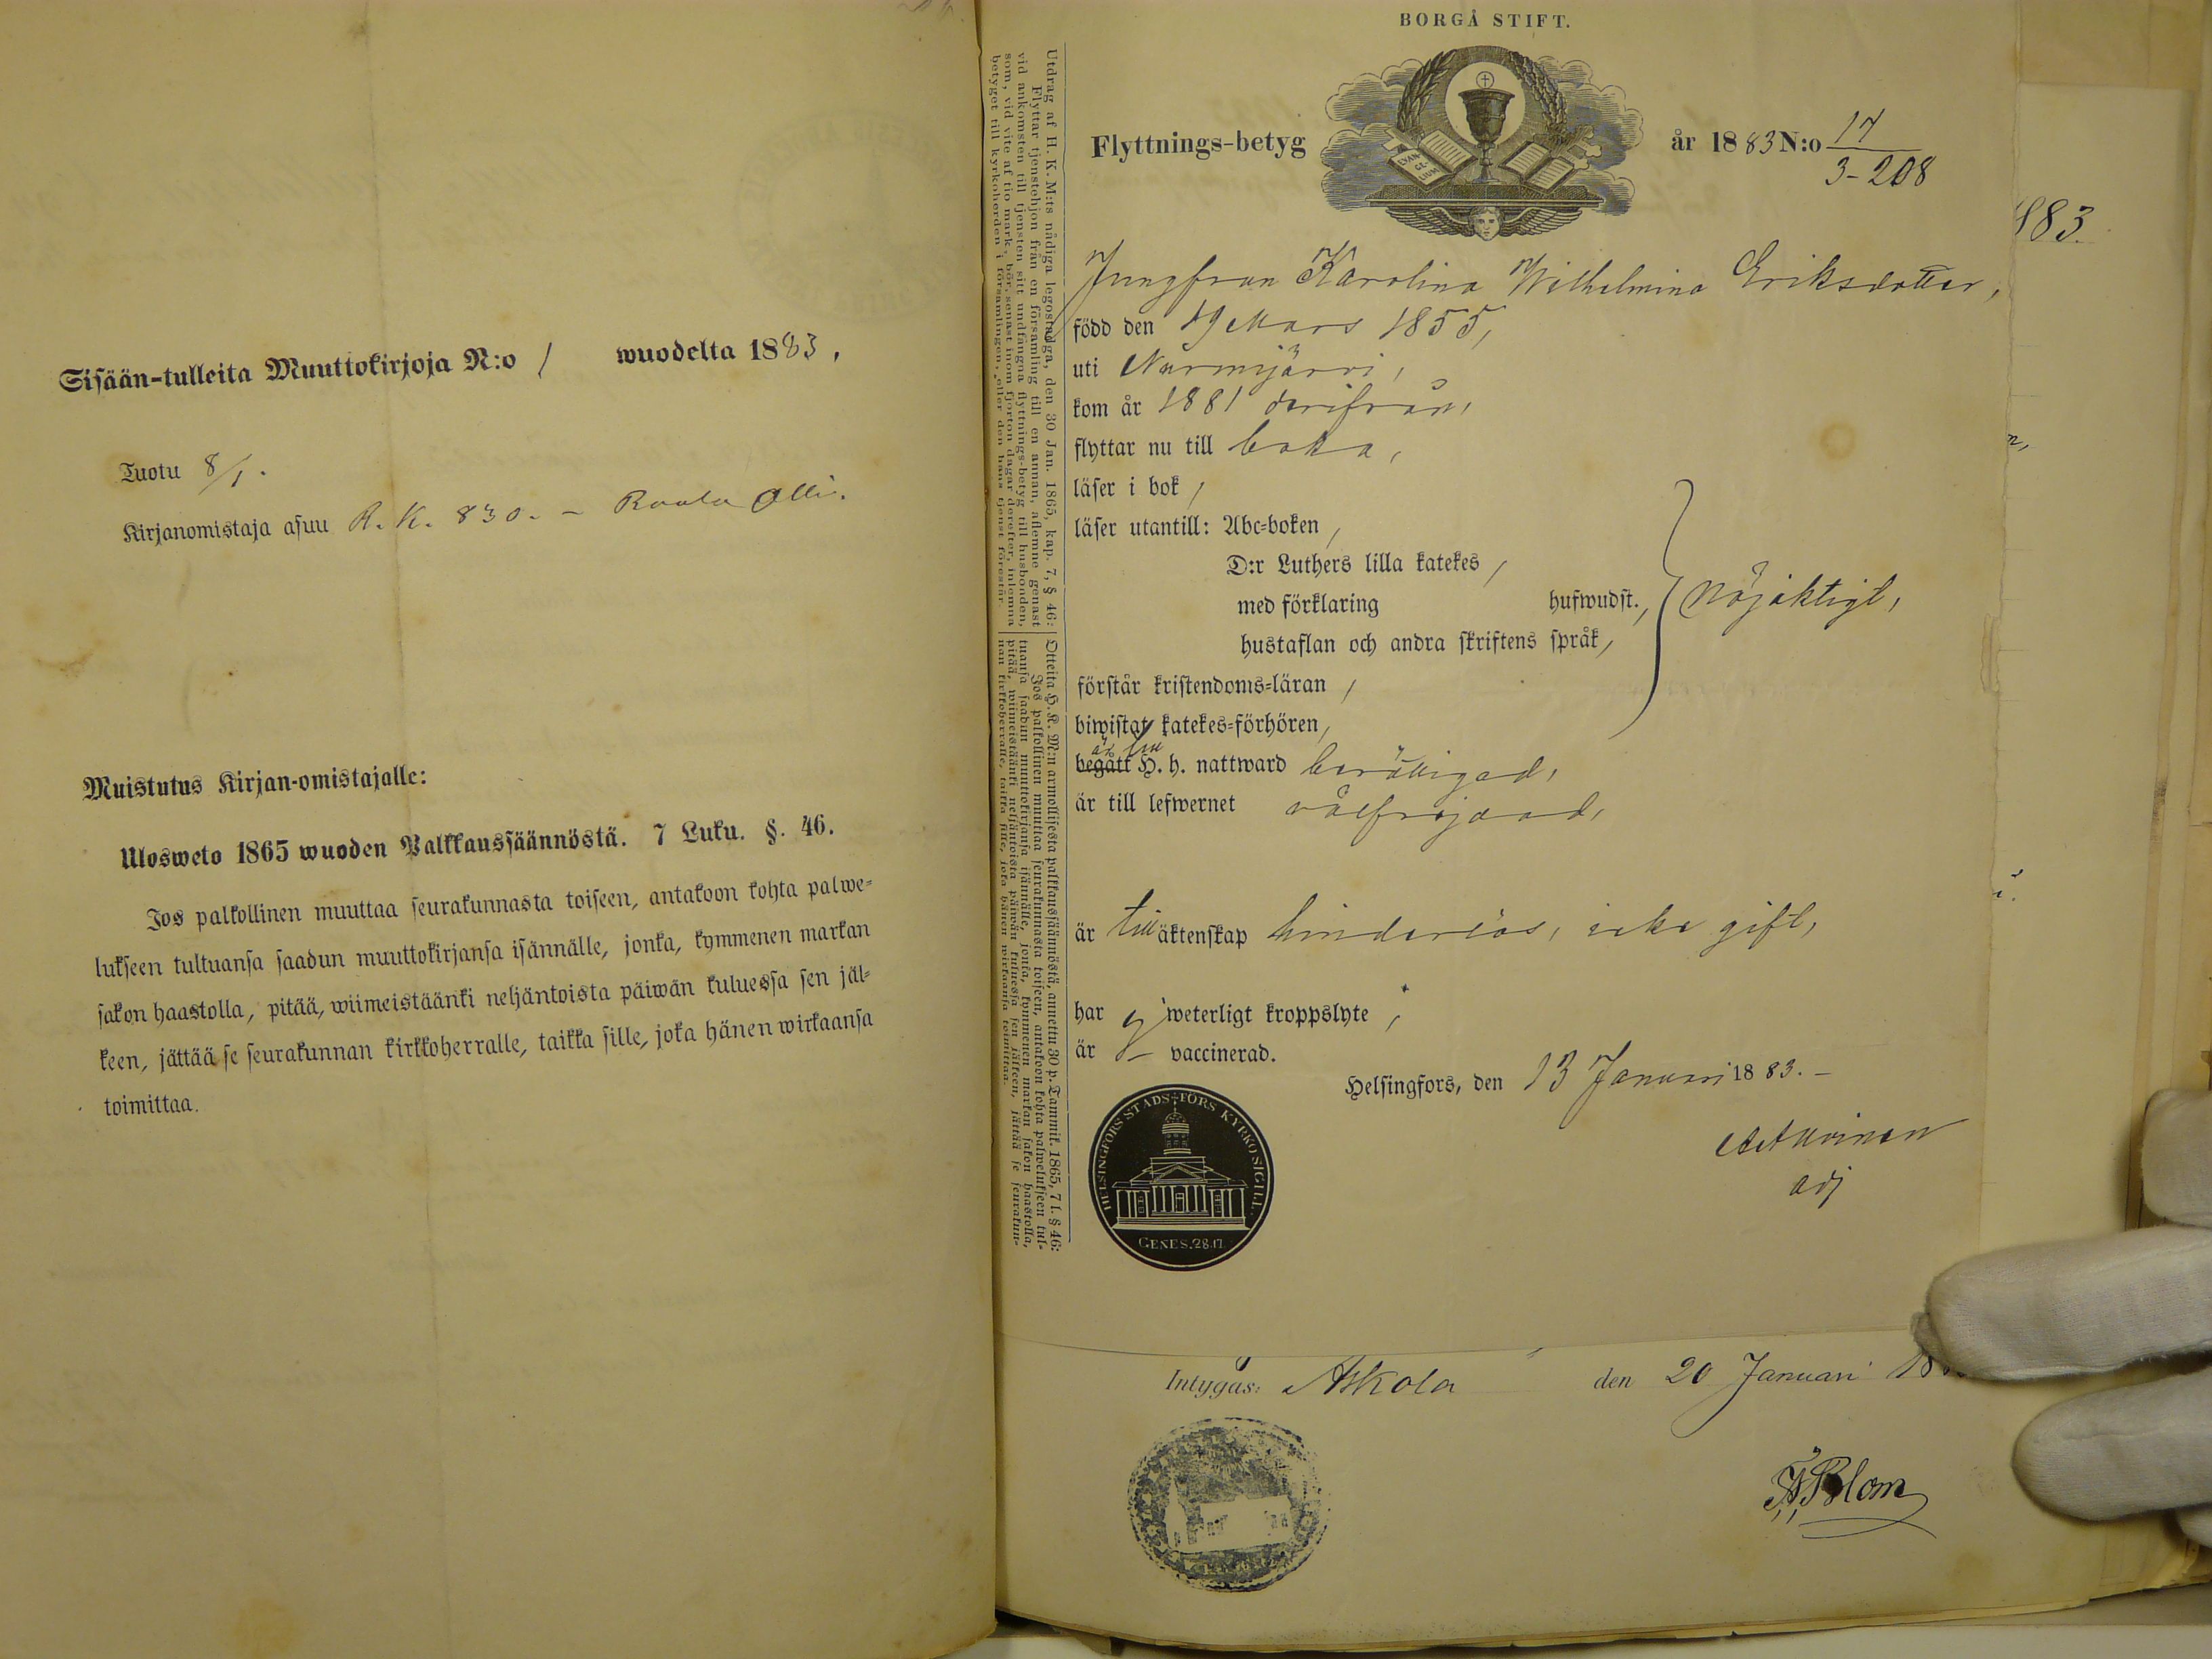 Sisään-tulleita Muuttokirjoja N:o 1 wuodelta 1883.
Tuotu 8/1.
Kirjanomistaja asuu R. K. 830. – Olli.
Muistutus Kirjan-omistajalle:
Ulosweto 1865 wuoden Palkkaussäännöstä. 7 Luku. §. 46.
Jos palkollinen muuttaa seurakunnasta toiseen, antakoon kohta palwe-
lukseen tultuansa saadun muuttokirjansa isännälle, jonka, kymmenen markan
sakon haastolla, pitää, wiimeistäänki neljäntoista päiwän kuluessa sen jäl-
keen, jättää se seurakunnan kirkkoherralle, taikka sille, joka hänen wirkaansa
toimittaa.
Utdrag af H. K. M:ts nådiga legostadga, den 30 Jan. 1865, kap. 7, § 46:
Flyttar tjenstehjon från en församling till en annan, aflemne genast
vid ankomsten till tjensten sitt undfångna flyttnings-betyg till husbonden,
som, vid vite af tio mark, bör, senast inom fjorton dagar derefter, inlemna
betyget till kyrkoherden i församlingen, eller den hans tjenst förestår.
Otteita H. K. M:n armollisesta palkkaussäännöstä, annettu 30 p. Tammik. 1865, 7 l. § 46:
Jos palkollinen muuttaa seurakunnasta toiseen, antakoon kohta palwelukseen tul-
tuansa saadun muuttokirjansa isännälle, jonka, kymmenen markan sakon haastolla,
pitää, wiimeistäänki neljäntoista päiwän kuluessa sen jälkeen, jättää se seurakun-
nan kirkkoherralle, taikka sille, joka hänen wirkaansa toimittaa.
BORGÅ STIFT.
EVAN-
GE-
LIUM
Flyttnings-betyg år 1883 N:o 17
3-208
Jungfrun Karolina Wilhelmina Eriksdotter,
född den 19 Mars 1855,
uti Nurmijärvi,
kom år 1881 derifrån,
flyttar nu till
läser i bok,
läser utantill: Abc-boken,
D:r Luthers lilla katekes,
med förklaring hufwudst., nöjaktigt,
hustaflan och andra skriftens språk,
förstår kristendoms-läran,
biwistat katekes-förhören,
är till
begått H. h. nattward berättigad,
är till lefwernet välfrejdad,
är till äktenskap hinderlös, icke gift,
har ej weterligt kroppslyte,
är vaccinerad.
Helsingfors, den 13 Januari 1883. –
adj
HELSINGFORS STADS FÖRS KYRKOSIGILL.
GENES. 28.17.
Intygas: Askola den 20 Januari 18
Blom
883.